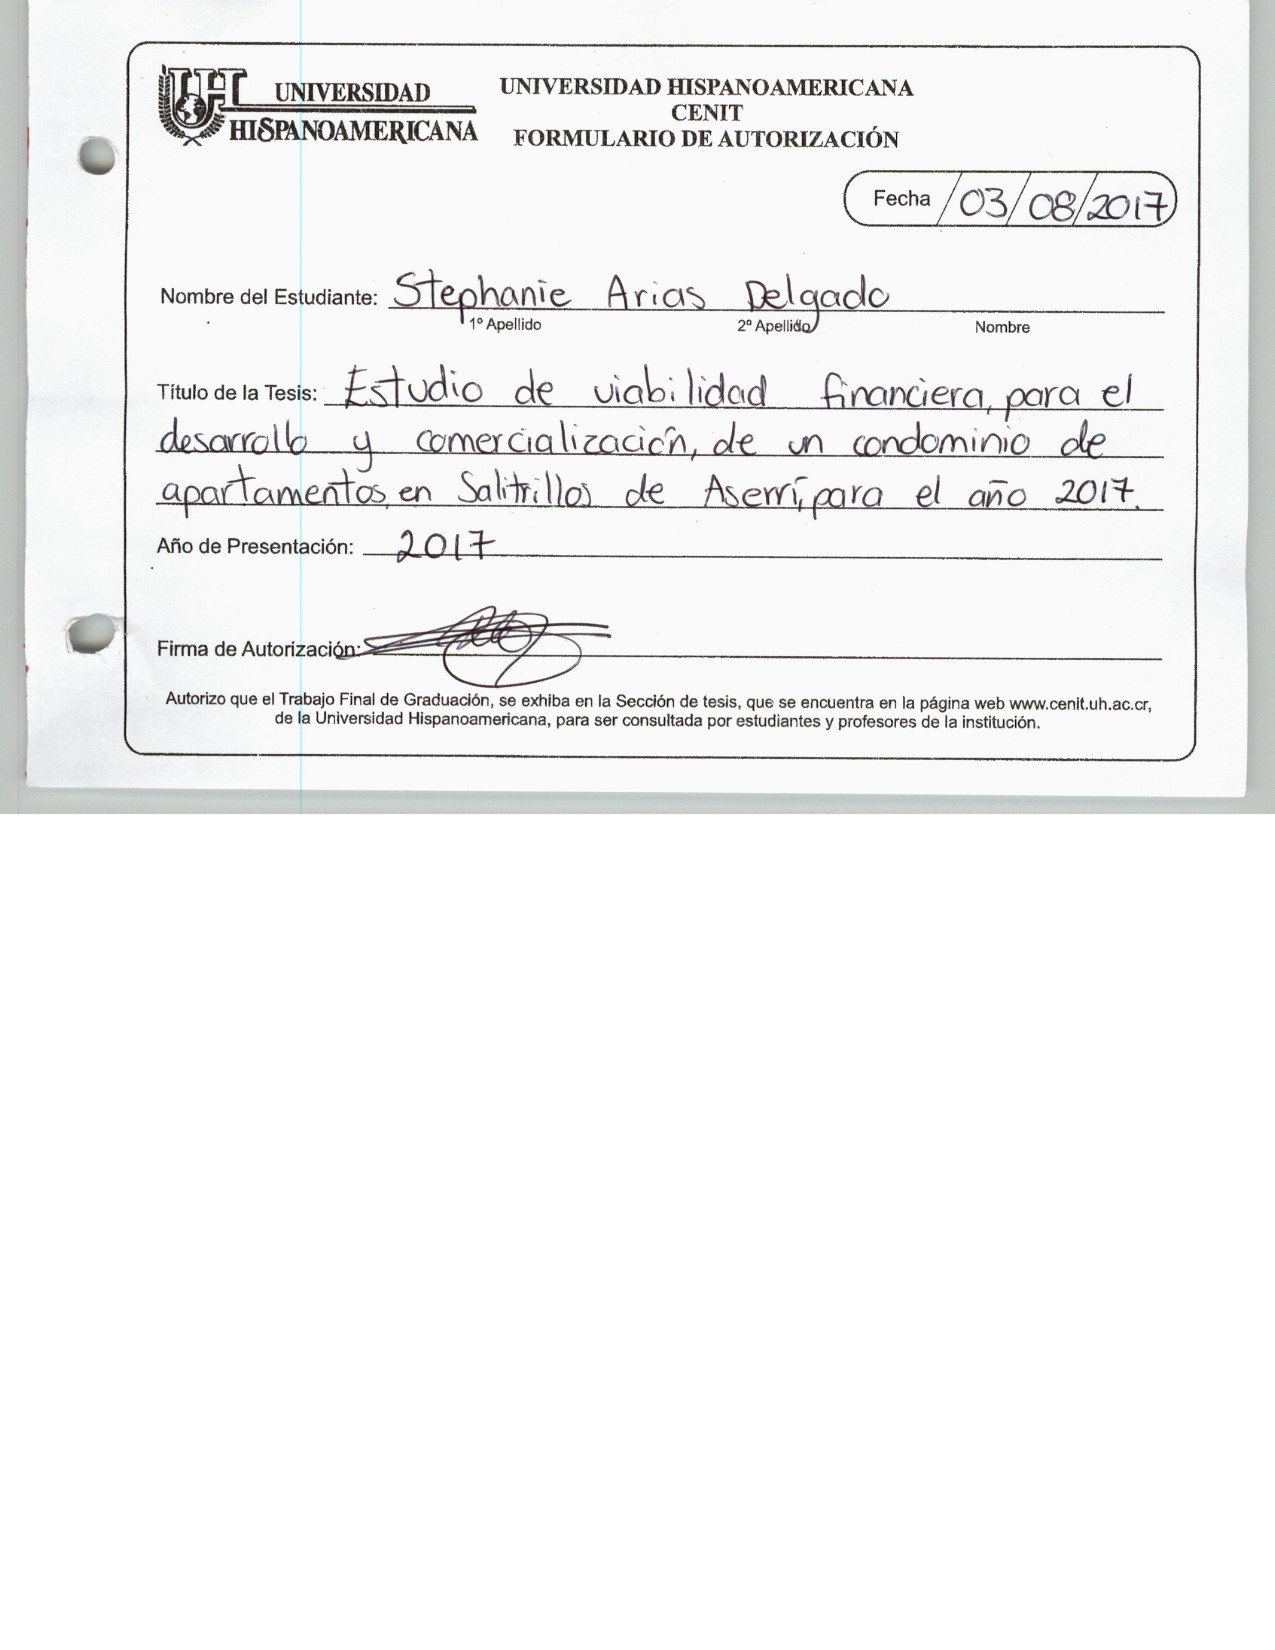 UH UNIVERSIDAD
HISPANOAMERICANA
UNIVERSIDAD HISPANOAMERICANA
CENIT
FORMULARIO DE AUTORIZACIÓN
Fecha /03/08/2017
Nombre del Estudiante: Stephanie Arias Delgado
1º Apellido 2º Apellido Nombre
Título de la Tesis: Estudio de viabilidad financiera, para el
desarrollo y comercialización, de un condominio de
apartamentos, en Salitrillos de Aserrí, para el año 2017.
Año de Presentación: 2017
Firma de Autorización:
Autorizo que el Trabajo Final de Graduación, se exhiba en la Sección de tesis, que se encuentra en la página web www.cenit.uh.ac.cr,
de la Universidad Hispanoamericana, para ser consultada por estudiantes y profesores de la institución.